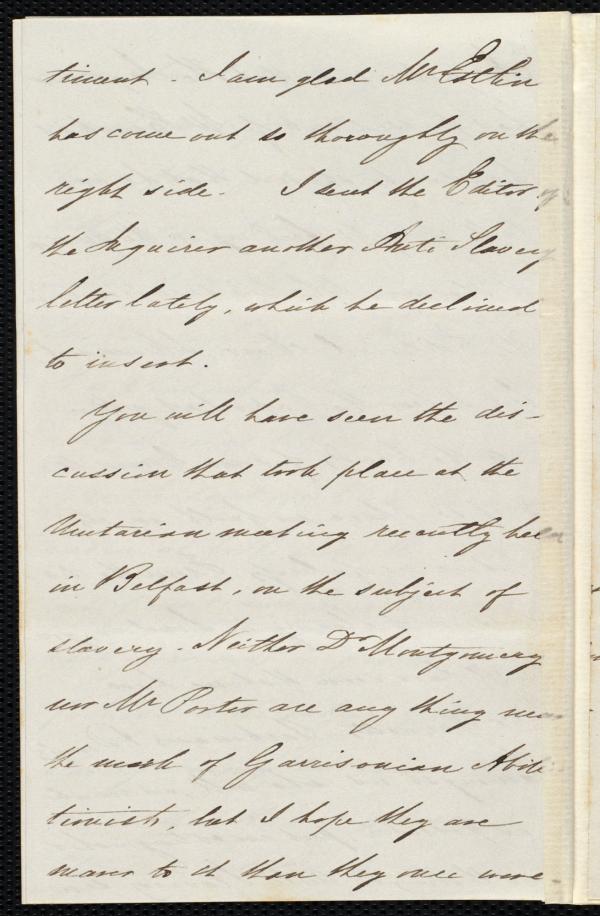 tinent - I am glad Mr Estlin
has come out so thoroughly on the
right side. I sent the Editor of
the Inquirer another Anti Slavery
letter lately, which he declined
to insert.
You will have seen the dis-
cussion that took place at the
Unitarian meeting recently held
in Belfast, on the subject of
slavery. Neither Dr Montgomery
nor Mr Porter are any thing near
the mark of Garrisonian Aboli
tionists, but I hope they are
nearer to it than they once were.